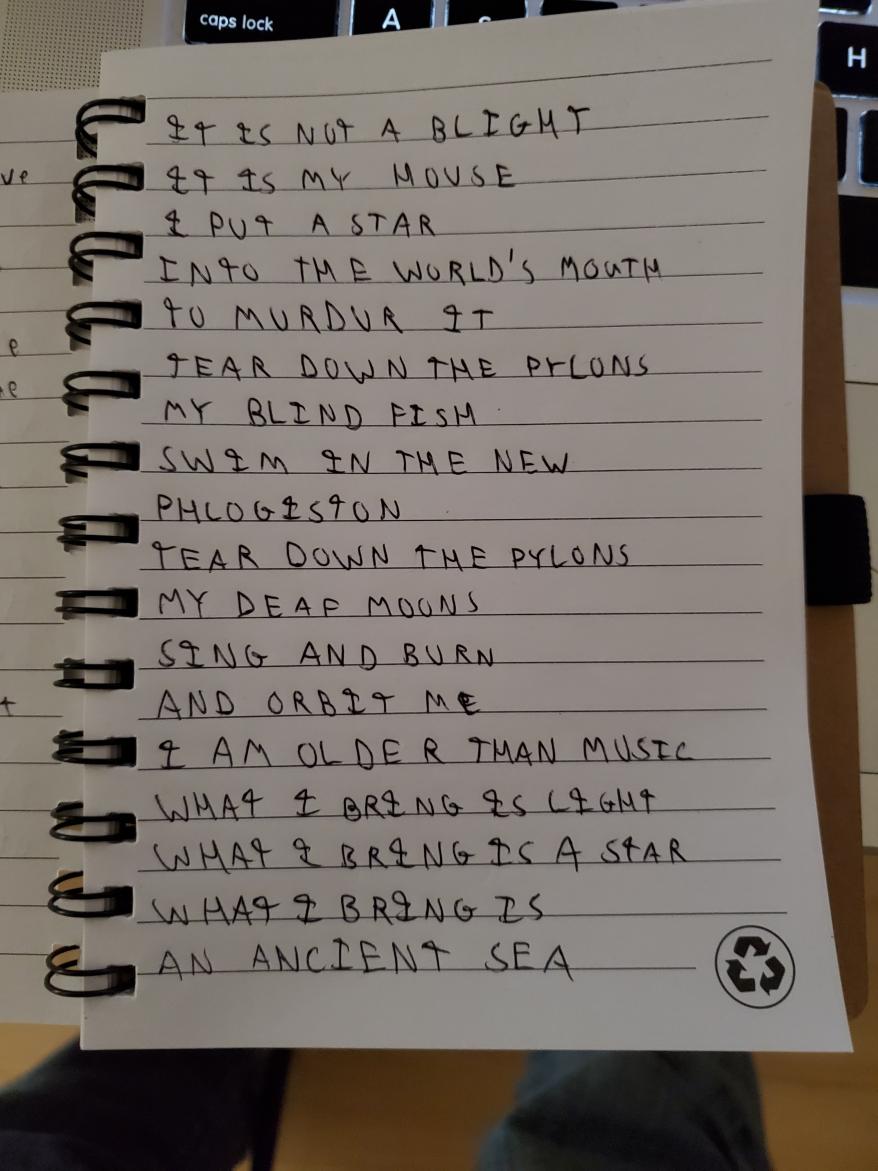 caps lock
A
H
IT IS NOT A BLIGHT
IT IS MY HOUSE
I PUT A STAR
INTO THE WORLD'S MOUTH
TO MURDUR IT
TEAR DOWN THE PYLONS
MY BLIND FISH
SWIM IN THE NEW
PHLOGISTON
TEAR DOWN THE PYLONS
MY DEAF MOONS
SING AND BURN
AND ORBIT ME
I AM OLDER THAN MUSIC
WHAT I BRING IS LIGHT
WHAT I BRING IS A STAR
WHAT I BRING IS
AN ANCIENT SEA